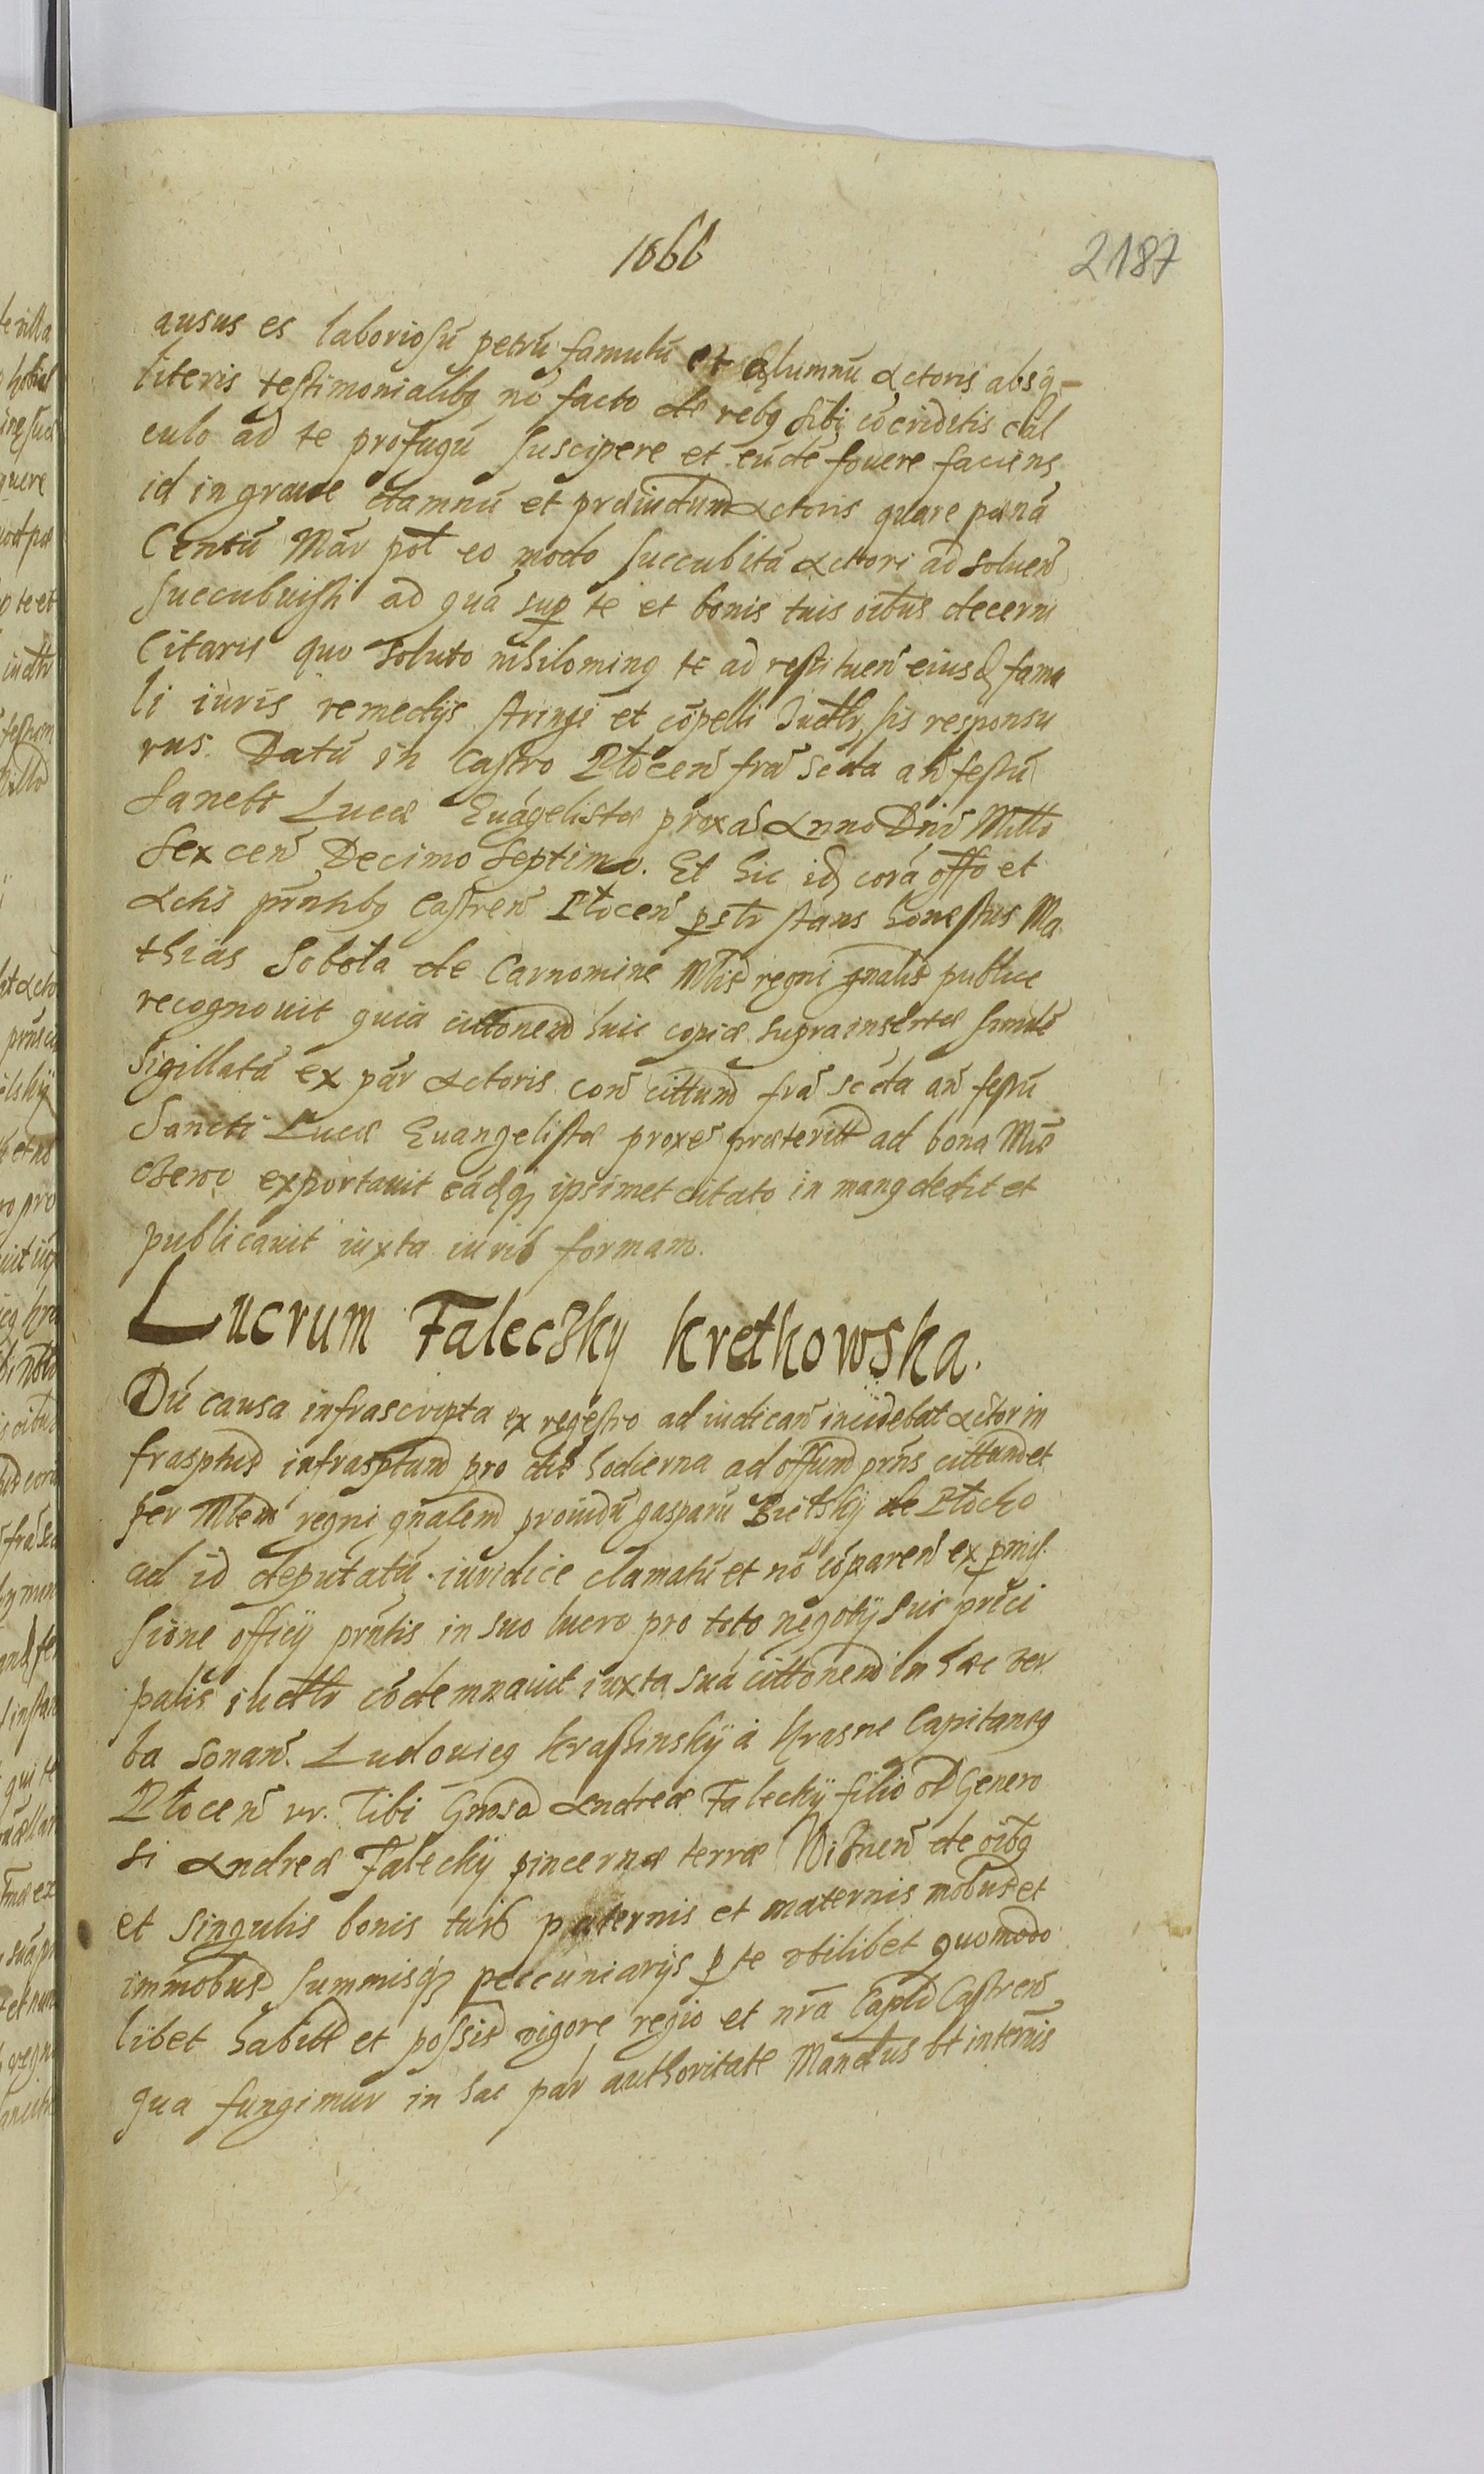 1066
2187
ausus es laboriosū petrū famulū et Alumnū Actoris absq̨
literis testimonialibq nō facto de rebq sibi cōcriditis cal
culo ad te profugū suscipere et eūdē fouere faciens
id in graue damnū et prdiudium Actoris quare pænā
Centū Mar pol eo modo succubitā Actori ad soluen̄
succubuisti ad quā sup te et bonis tuis oibus decerni
Citaris quo soluto nihilominq te ad restituen̄ eiusdꝫ famu
li iuris remedijs stringi et cōpelli Iudlr, sis responsu
rus. Datū in Castro Plocen̄ frā scda an̄ festū
Sancti Lucæ Euāgelistæ proxā Anno Dn̄i Millo
Sexcen̄ Decimo Septimo. Et hic idꝫ corā offo et
Actis prn̄tibq Castren̄ Plocen̄ pslr stans honestus Ma
thias Sobota de Carnomine Mlis regni gnalis publice
recognouit quia cittonem huic copiæ suprainsertæ similē
Sigillatā ex par Actoris con̄ cittum frā scda an̄ festū
Sancti Lucæ Euangelistæ proxe præteritt ad bona Mie
exportauit eādꝫqꝫ ipsimet citato in manq dedit et
publicauit iuxta iuris formam.
Lucrum Faleczky Kretkowska.
Dū causa infrascripta ex regestro ad iudican̄ incidebat Actor in
frasptus infrasptum pro die hodierna ad offum prn̄s cittum et
per Mlem regni gnalem prouidū gasparū Bielsky de Plocko
ad id deputatū iuridice clamatū et nō cōparen̄ ex pmis
sione officij prn̄tis in suo lucro pro toto negotij sui prīci
palis iudlr cōdemnauit iuxta suā cittonem in hæc ver
ba sonan̄. Ludouicq Krasinskÿ à Krasne Capitaneq
Plocen̄ rr. Tibi Gnoso Andreæ Faleckÿ filio ol Genero
si Andreæ Faleckÿ pincernæ terræ Wisnen̄ de oibq
et singulis bonis tuis paternis et maternis mobus et
immobus summisqꝫ peccuniarijs p te vbilibet quomodo
libet habitt et possis vigore regio et nrā Caplı Castren̄
qua fungimur in hac par authoritate Mandus vt intermis